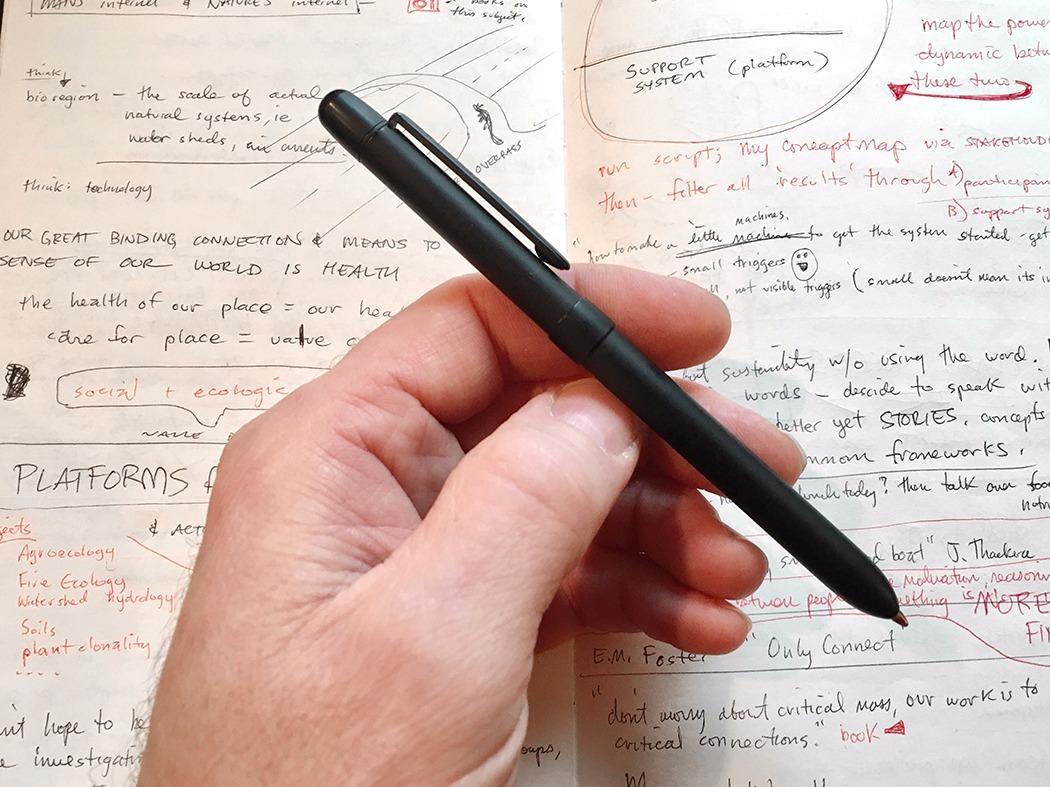 MANS internet & NATURES internet
books on
this subject.
think
bioregion – the scale of actual
natural systems, ie
water sheds, air currents
OVERPASS
think: technology
OUR GREAT BINDING CONNECTION & MEANS TO
SENSE OF OUR WORLD IS HEALTH
the health of our place = our hea
care for place = value
social + ecologic
PLATFORMS
& ACT
Agroecology
Fire Ecology
watershed hydrology
Soils
plant clonality
....
hope to be
investigati
oups,
SUPPORT
SYSTEM (platform)
map the power
dynamic betw
these two
run script; my concept map via STAKEHOLD
then – filter all 'results' through A) participan
B) support sy
machines.
how to make a little machine to get the system started – get
– small triggers
not visible triggers (small doesn't mean its in
sustainability w/o using the word.
words – decide to speak wit
better yet STORIES, concepts
mmon frameworks.
lunch today? then talk over
boat" J. Thackara
MORE
between people something is
E.M. Foster "Only Connect
"don't worry about critical mass, our work is to
critical connections." book